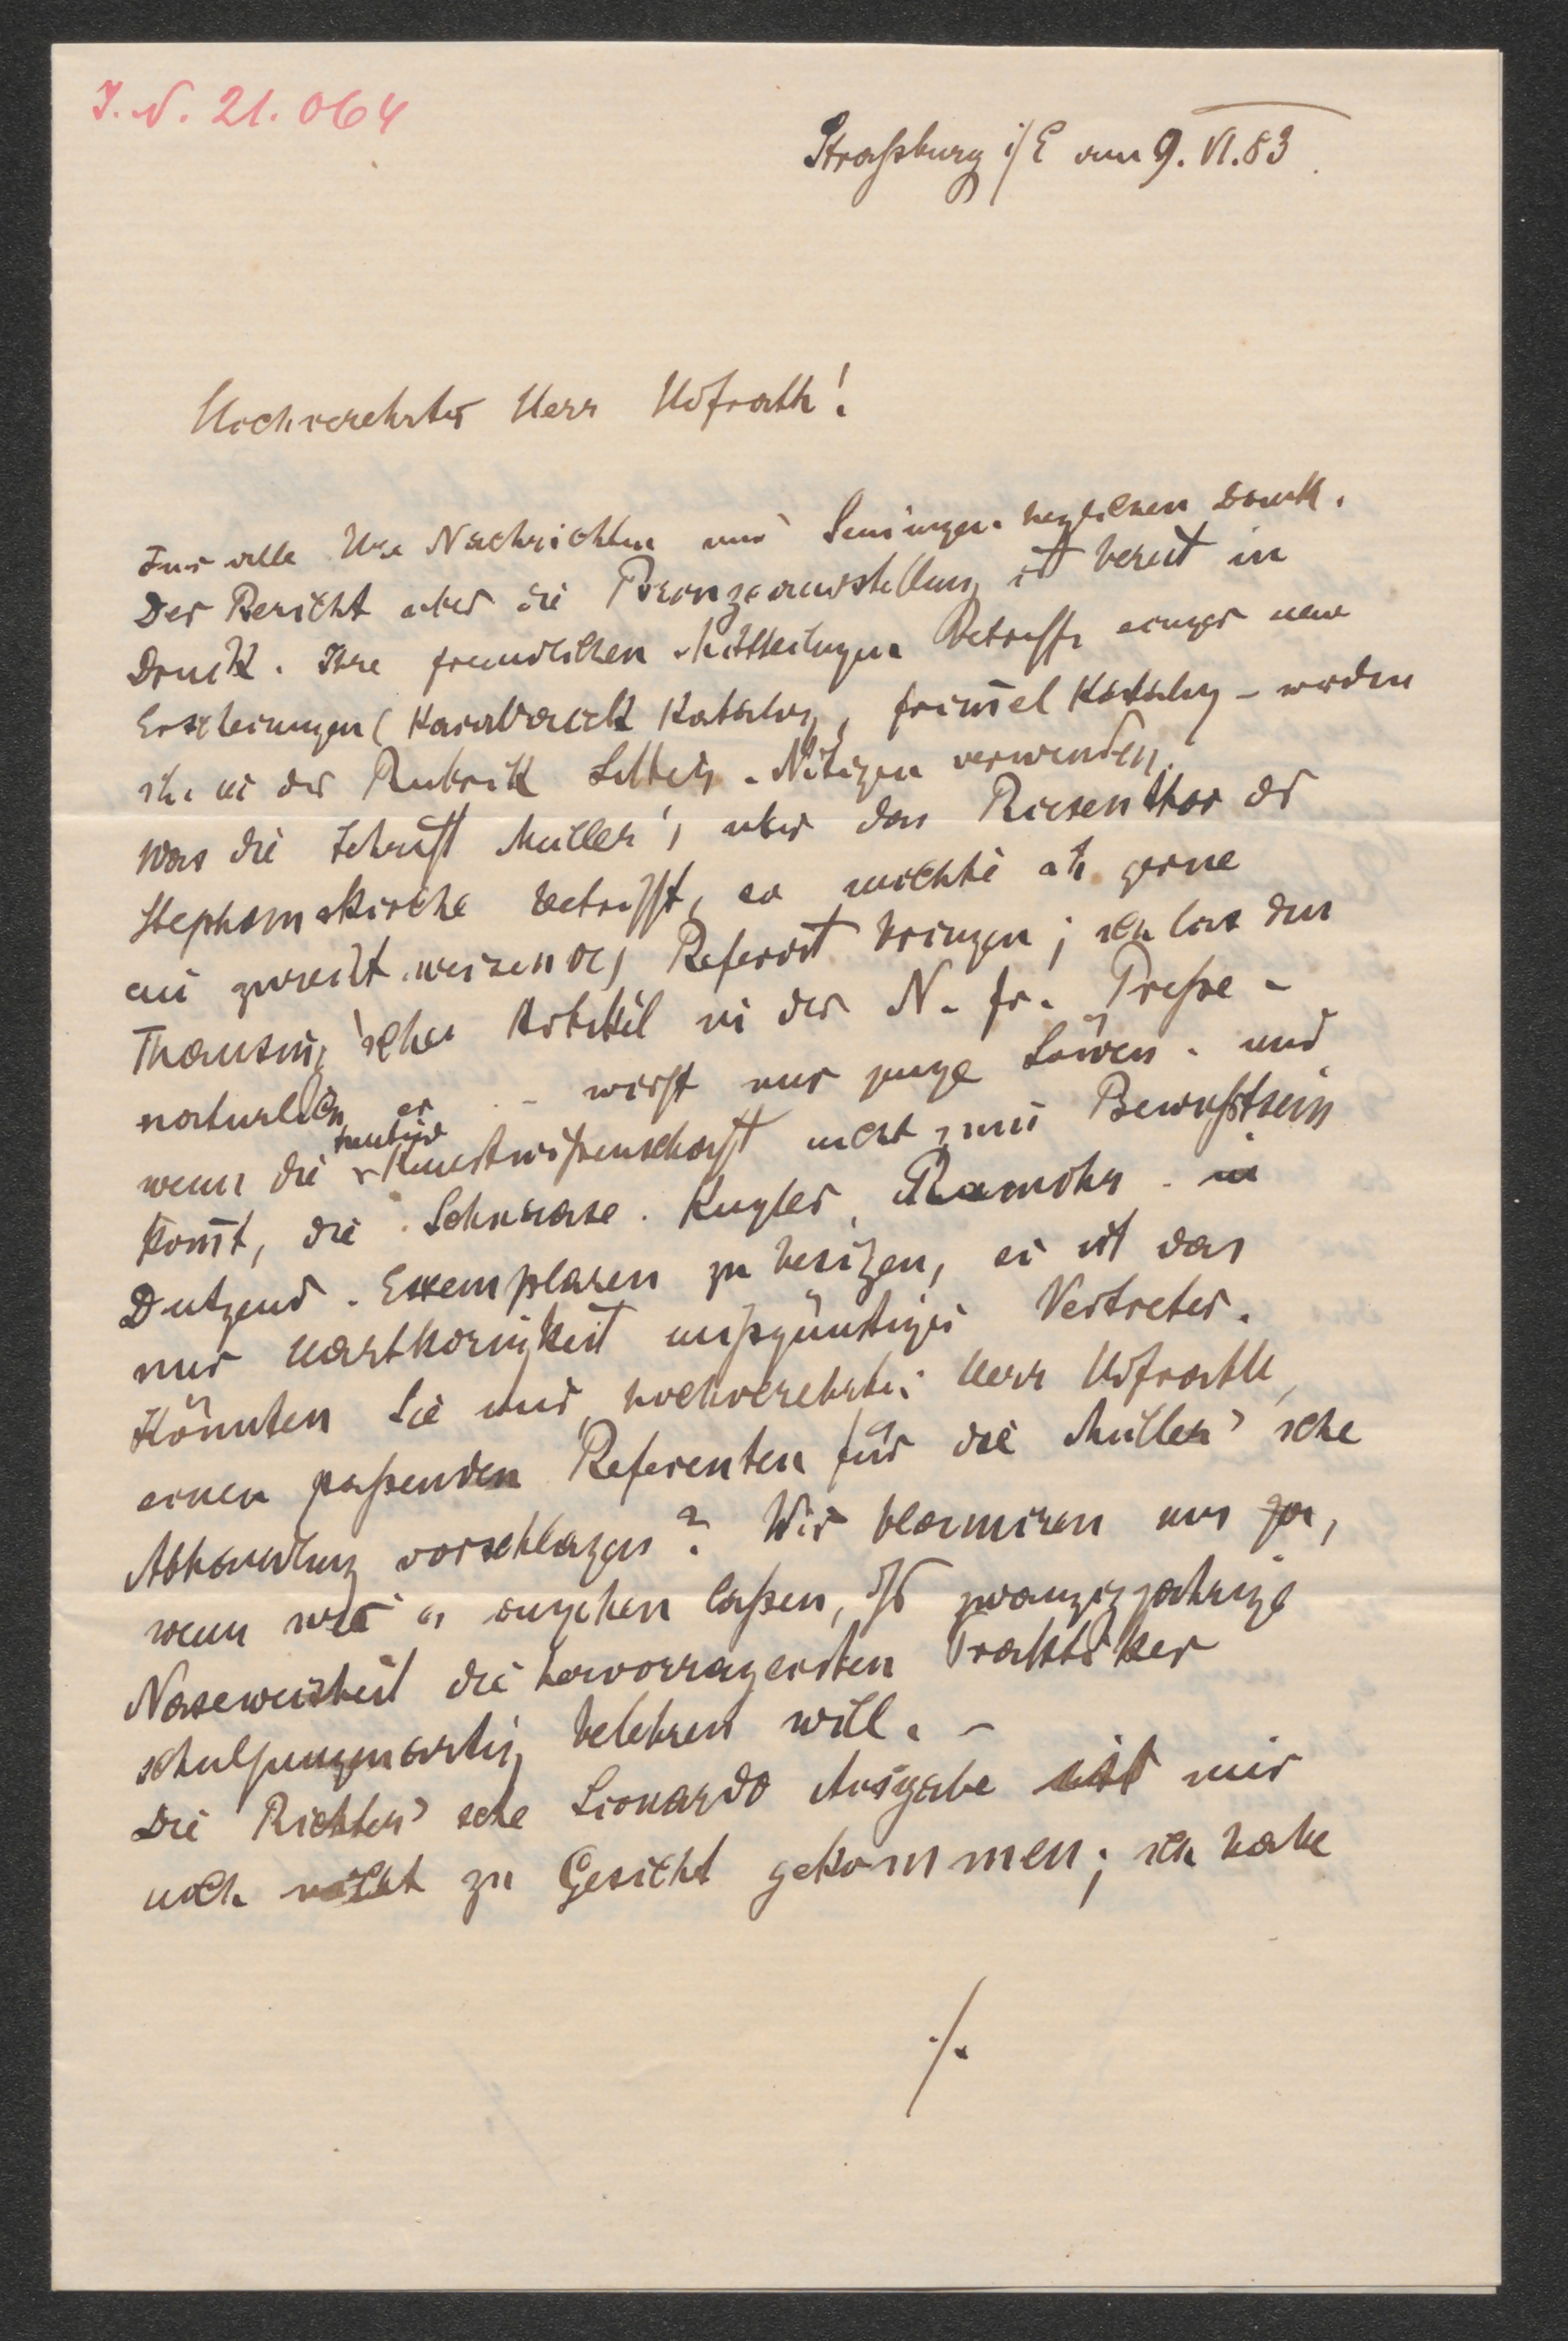 J. N. 21.064
Straßburg i/E am 9. VI. 83.
Hochverehrter Herr Hofrath!
Für alle Ihre Nachrichten und Sendungen herzlichen Dank.
Der Bericht über die Bronzeausstellung ist bereit in
Druck. Ihre freundlichen Mittheilungen Betreffs einiger neue
Erscheinungen (Karabacek Katalog, Frim̄el Katalog – werden
ich in der Rubrik Notizen verwenden.
Was die Schrift Müller's über das Riesenthor der
Stephanskirche betrifft, so möchte ich gerne
ein zurechtweisendes Referat bringen; ich las den
Thausing'schen Artikel in der N. fr. Preße –
natürlich, er – wirft nur junge Löwen – und
wenn die Kunstwißenschaft nicht zum Bewußtsein
kom̄t, die Schnaase. Kugler, Rumohr in
Dutzend. Exemplaren zu besitzen, so ist das
nur Hartköpfigkeit mißgünstiger Vertreter.
Könnten Sie mir, hochverehrter Herr Hofrath,
einen paßenden Referenten für die Müller'sche
Abhandlung vorschlagen? Wir blamiren uns ja,
wenn wir es angehen laßen, daß zwanzigjährige
Naseweisheit die hervorragendsten Praktiker
schuljungenartig belehren will. –
Die Richter'sche Lionardo Ausgabe ist mir
noch nicht zu Gesicht gekommen; ich habe
./.